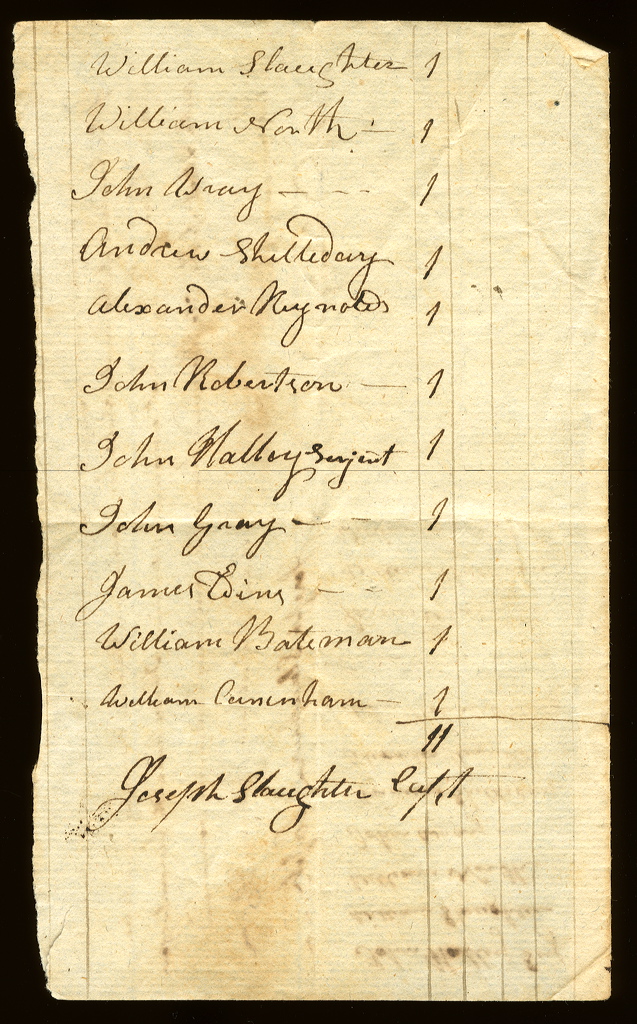 William Slaughter 1
William North - 1
John Wray - - - 1
Andrew Shilleday 1
Alexander Reynolds 1
John Robertson - 1
John Halley Serjent 1
John Gray - - 1
James Edins - - 1
William Bateman 1
William Cunenham - 1
11
Joseph Slaughter Capt